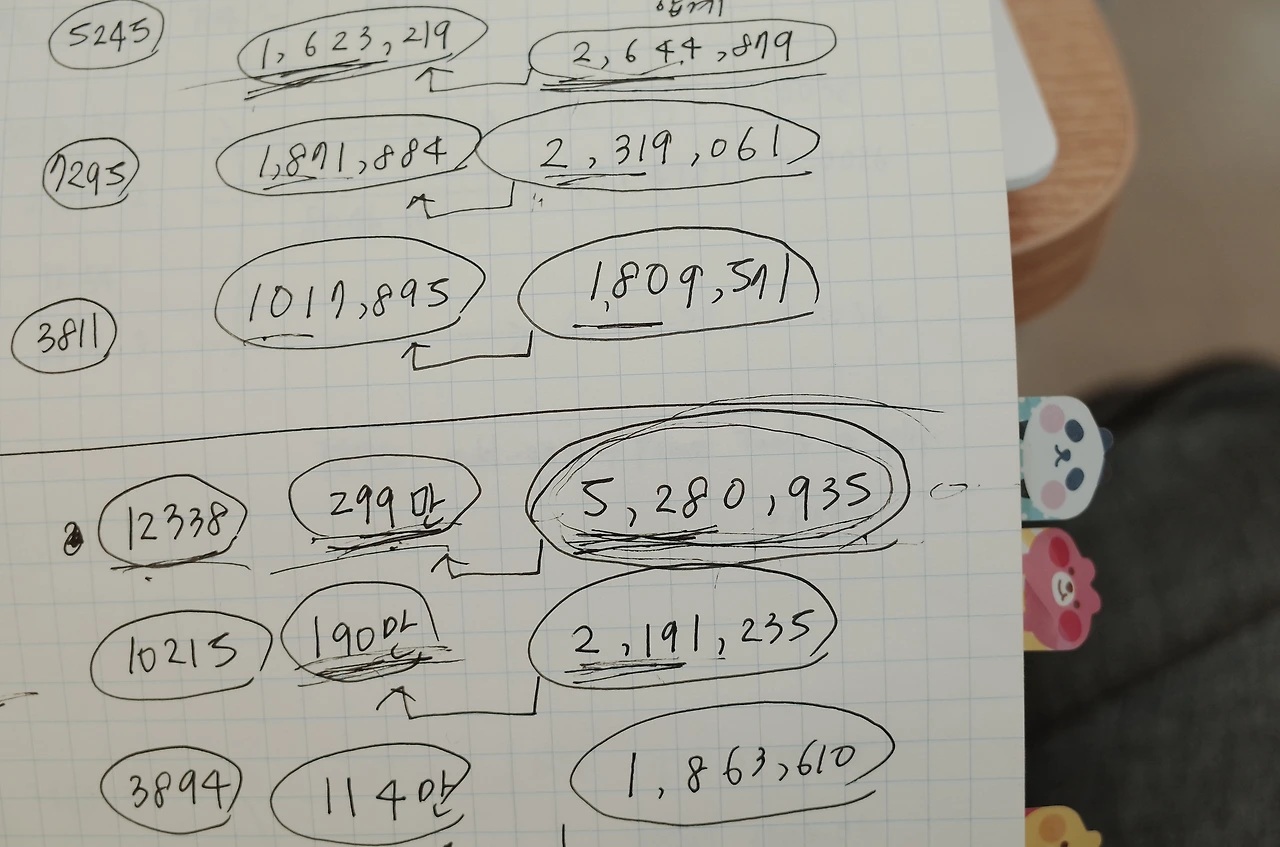 5245 1,623,219 2,644,879
7295 1,871,884 2,319,061
3811 1017,895 1,809,571
12338 299만 5,280,935
10215 190만 2,191,235
3894 114만 1,863,610